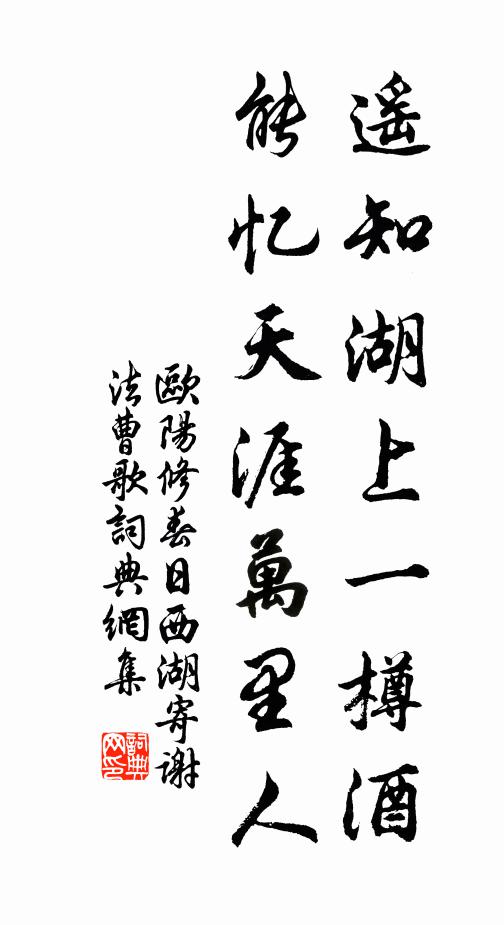 遥知湖上一樽酒
能忆天涯萬里人
歐陽修春日西湖寄謝
法曹歌詞典網集
詞典
网印